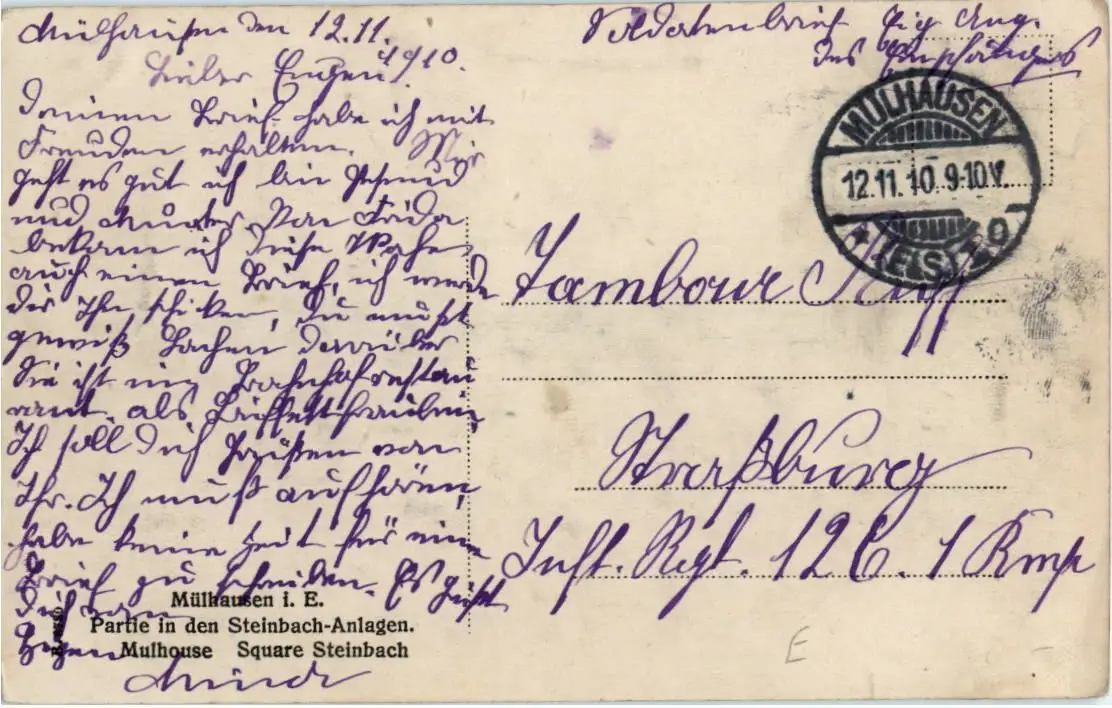 Mülhausen den 12.11.
1910.
Soldatenbrief Eig. Ang.
des Empfängers
Lieber Eugen
Deinen Brief habe ich mit
Freuden erhalten. Mir
geht es gut ich bin gesund
und munter. Von Frida
bekam ich diese Woche
auch einen Brief, ich werde
dir Ihn schicken, Du mußt
gewiß Lachen darüber
Sie ist im Bahnhofrestau
rant als Büffettfräulein
Ich soll dich Grüßen von
Ihr. Ich muß aufhören,
habe keine Zeit für ein
Brief zu schreiben. Es grüßt
dich
MÜLHAUSEN
12.11.10.9-10V.
(ELS)
Tambour
Straßburg
Inft. Regt. 126. 1 Kmp
Mülhausen i. E.
Partie in den Steinbach-Anlagen.
Mulhouse Square Steinbach
E